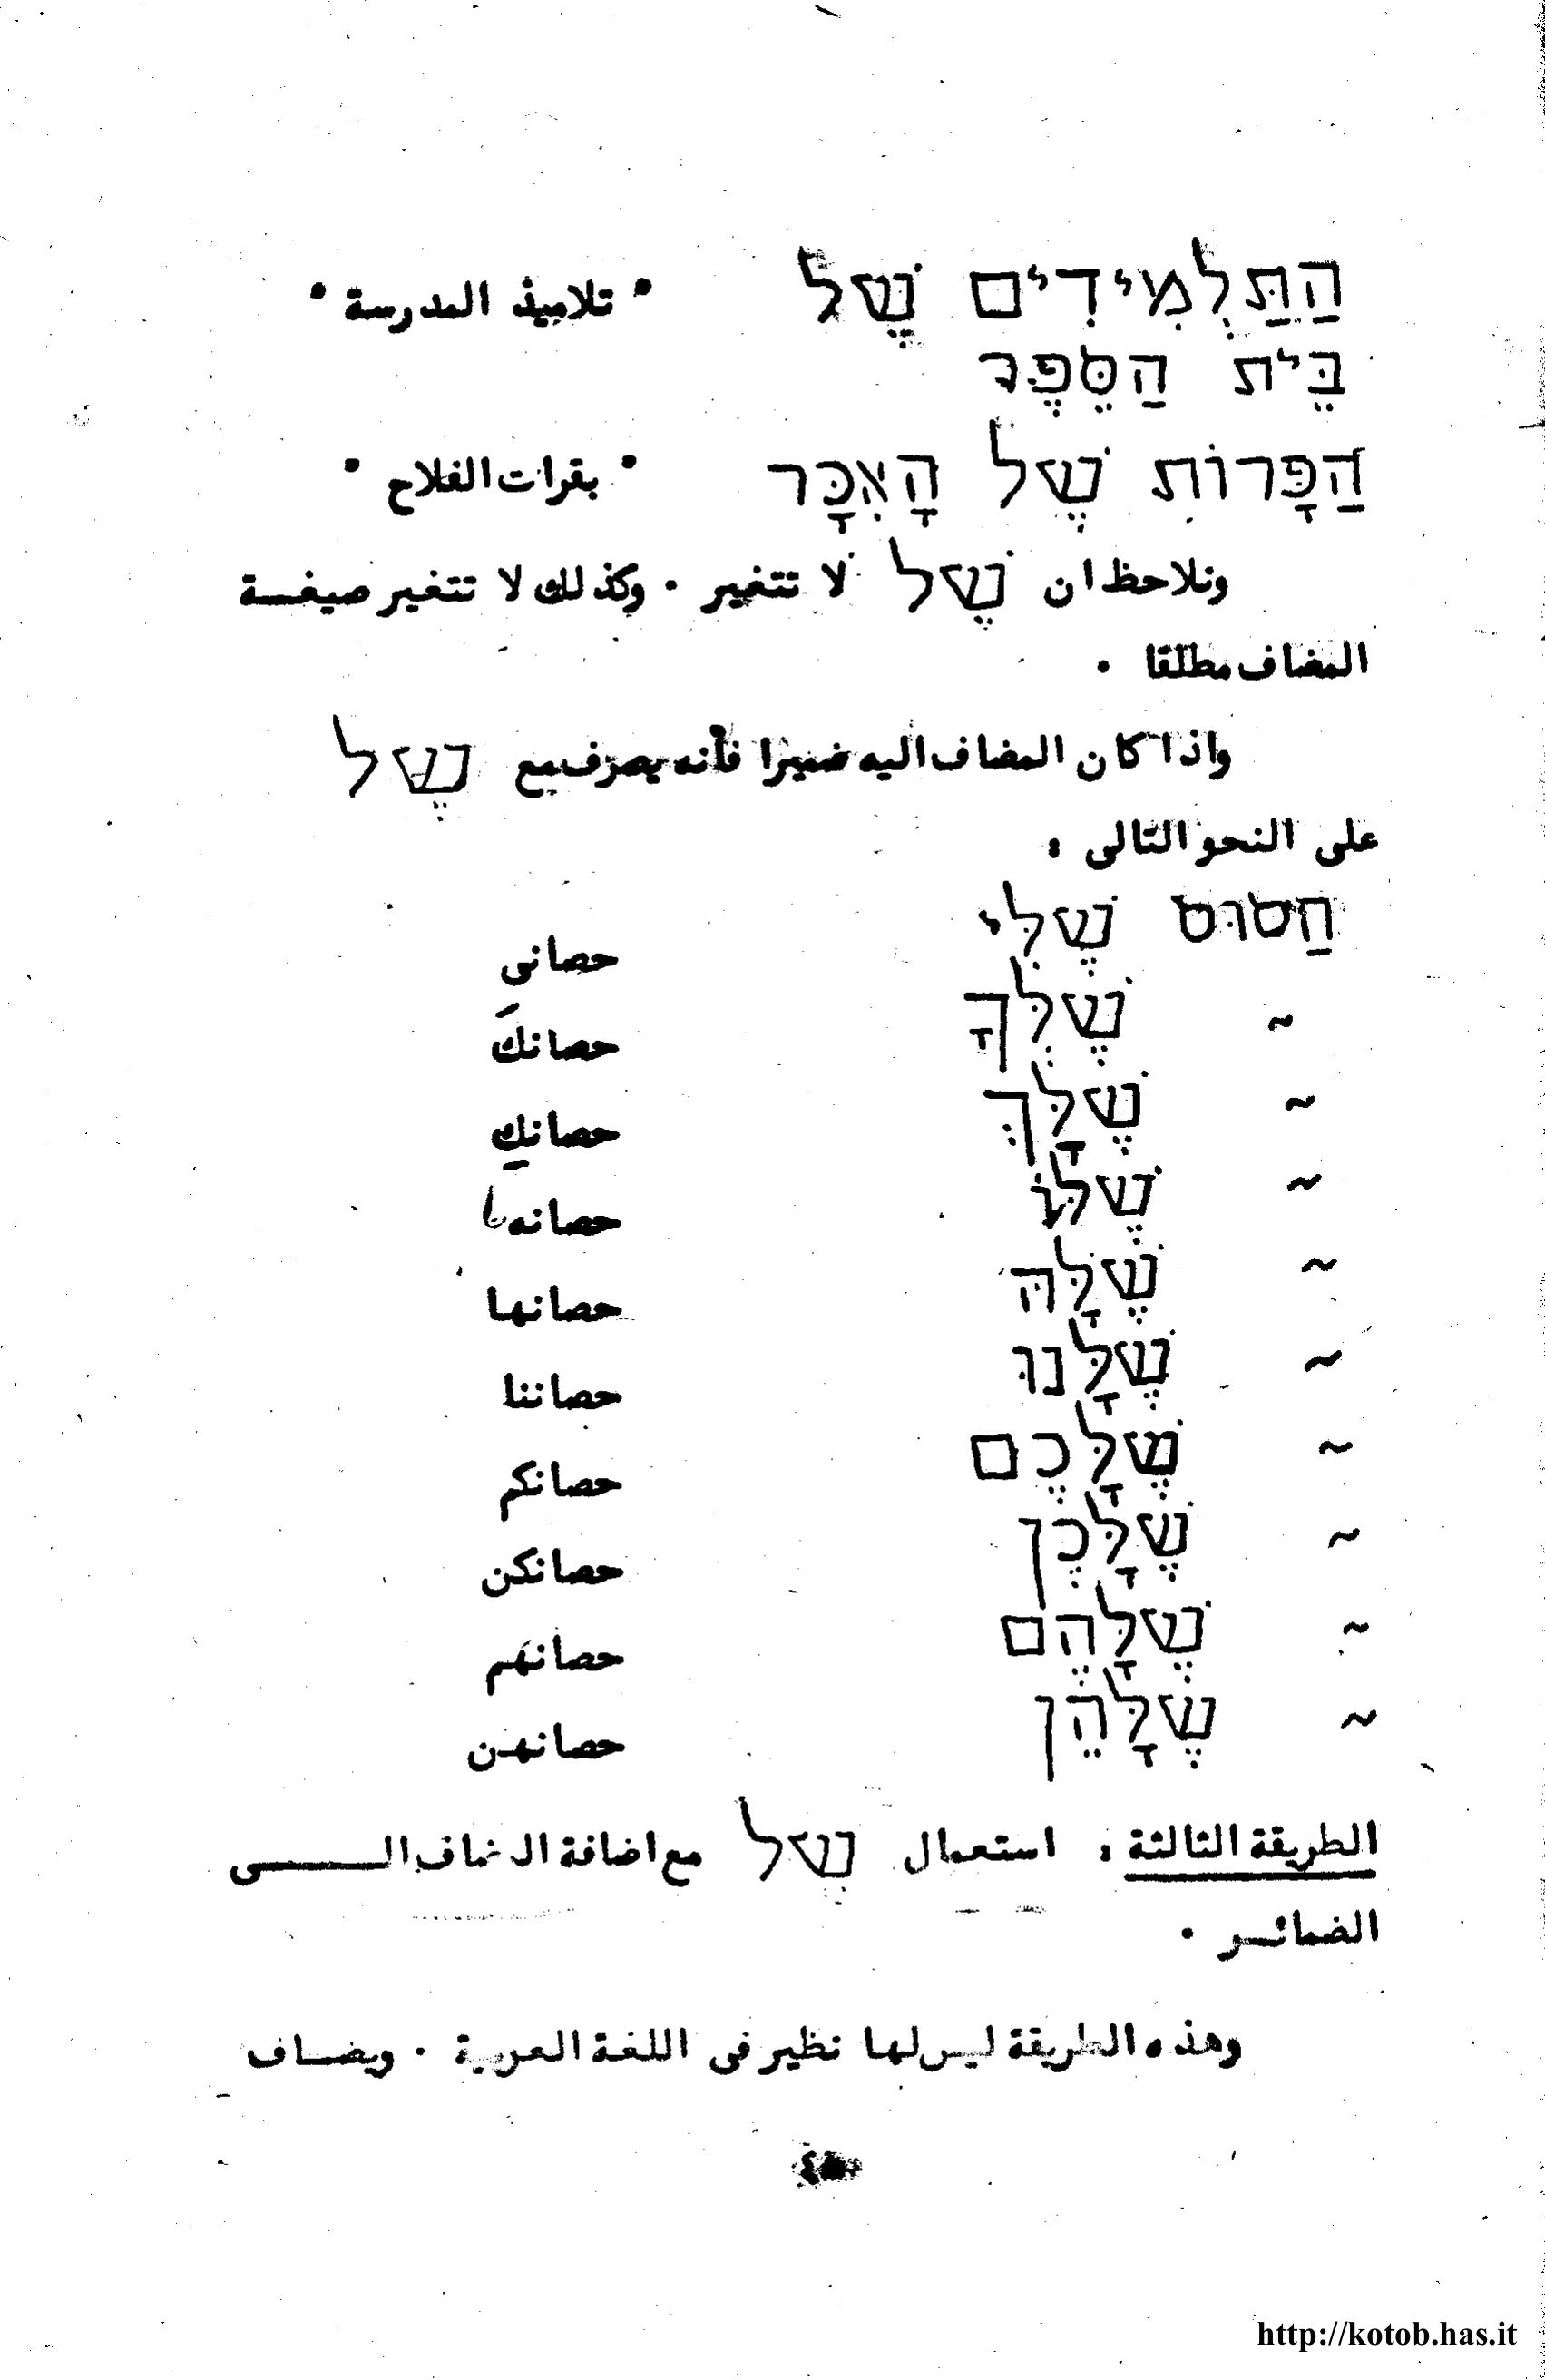 הַתַּלְמִידִים שֶׁל " تلاميذ المدرسة "
בֵּית הַסֵּפֶר
הַפָּרוֹת שֶׁל הָאִכָּר " بقرات الفلاح "
ونلاحظ ان שֶׁל لا تتغير ٠ وكذلك لا تتغير صيغـــة
المضاف مطلقا ٠
واذا كان المضاف اليه ضميرا فأنه يصرف مع שֶׁל
على النحو التالى :
הַסוּס שֶׁלִּי حصانى
~ שֶׁלְּךָ حصانكَ
~ שֶׁלָּךְ حصانكِ
~ שֶׁלּוֹ حصانه
~ שֶׁלָּהּ حصانها
~ שֶׁלָּנוּ حصاننا
~ שֶׁלָּכֶם حصانكم
~ שֶׁלָּכֶן حصانكن
~ שֶׁלָּהֶם حصانهم
~ שֶׁלָּהֵן حصانهن
الطريقة الثالثة : استعمال שֶׁל مع اضافة المضاف الـــــى
الضمائـــر ٠
وهذه الطريقة ليس لها نظير فى اللغة العربية ٠ ويضــاف
http://kotob.has.it